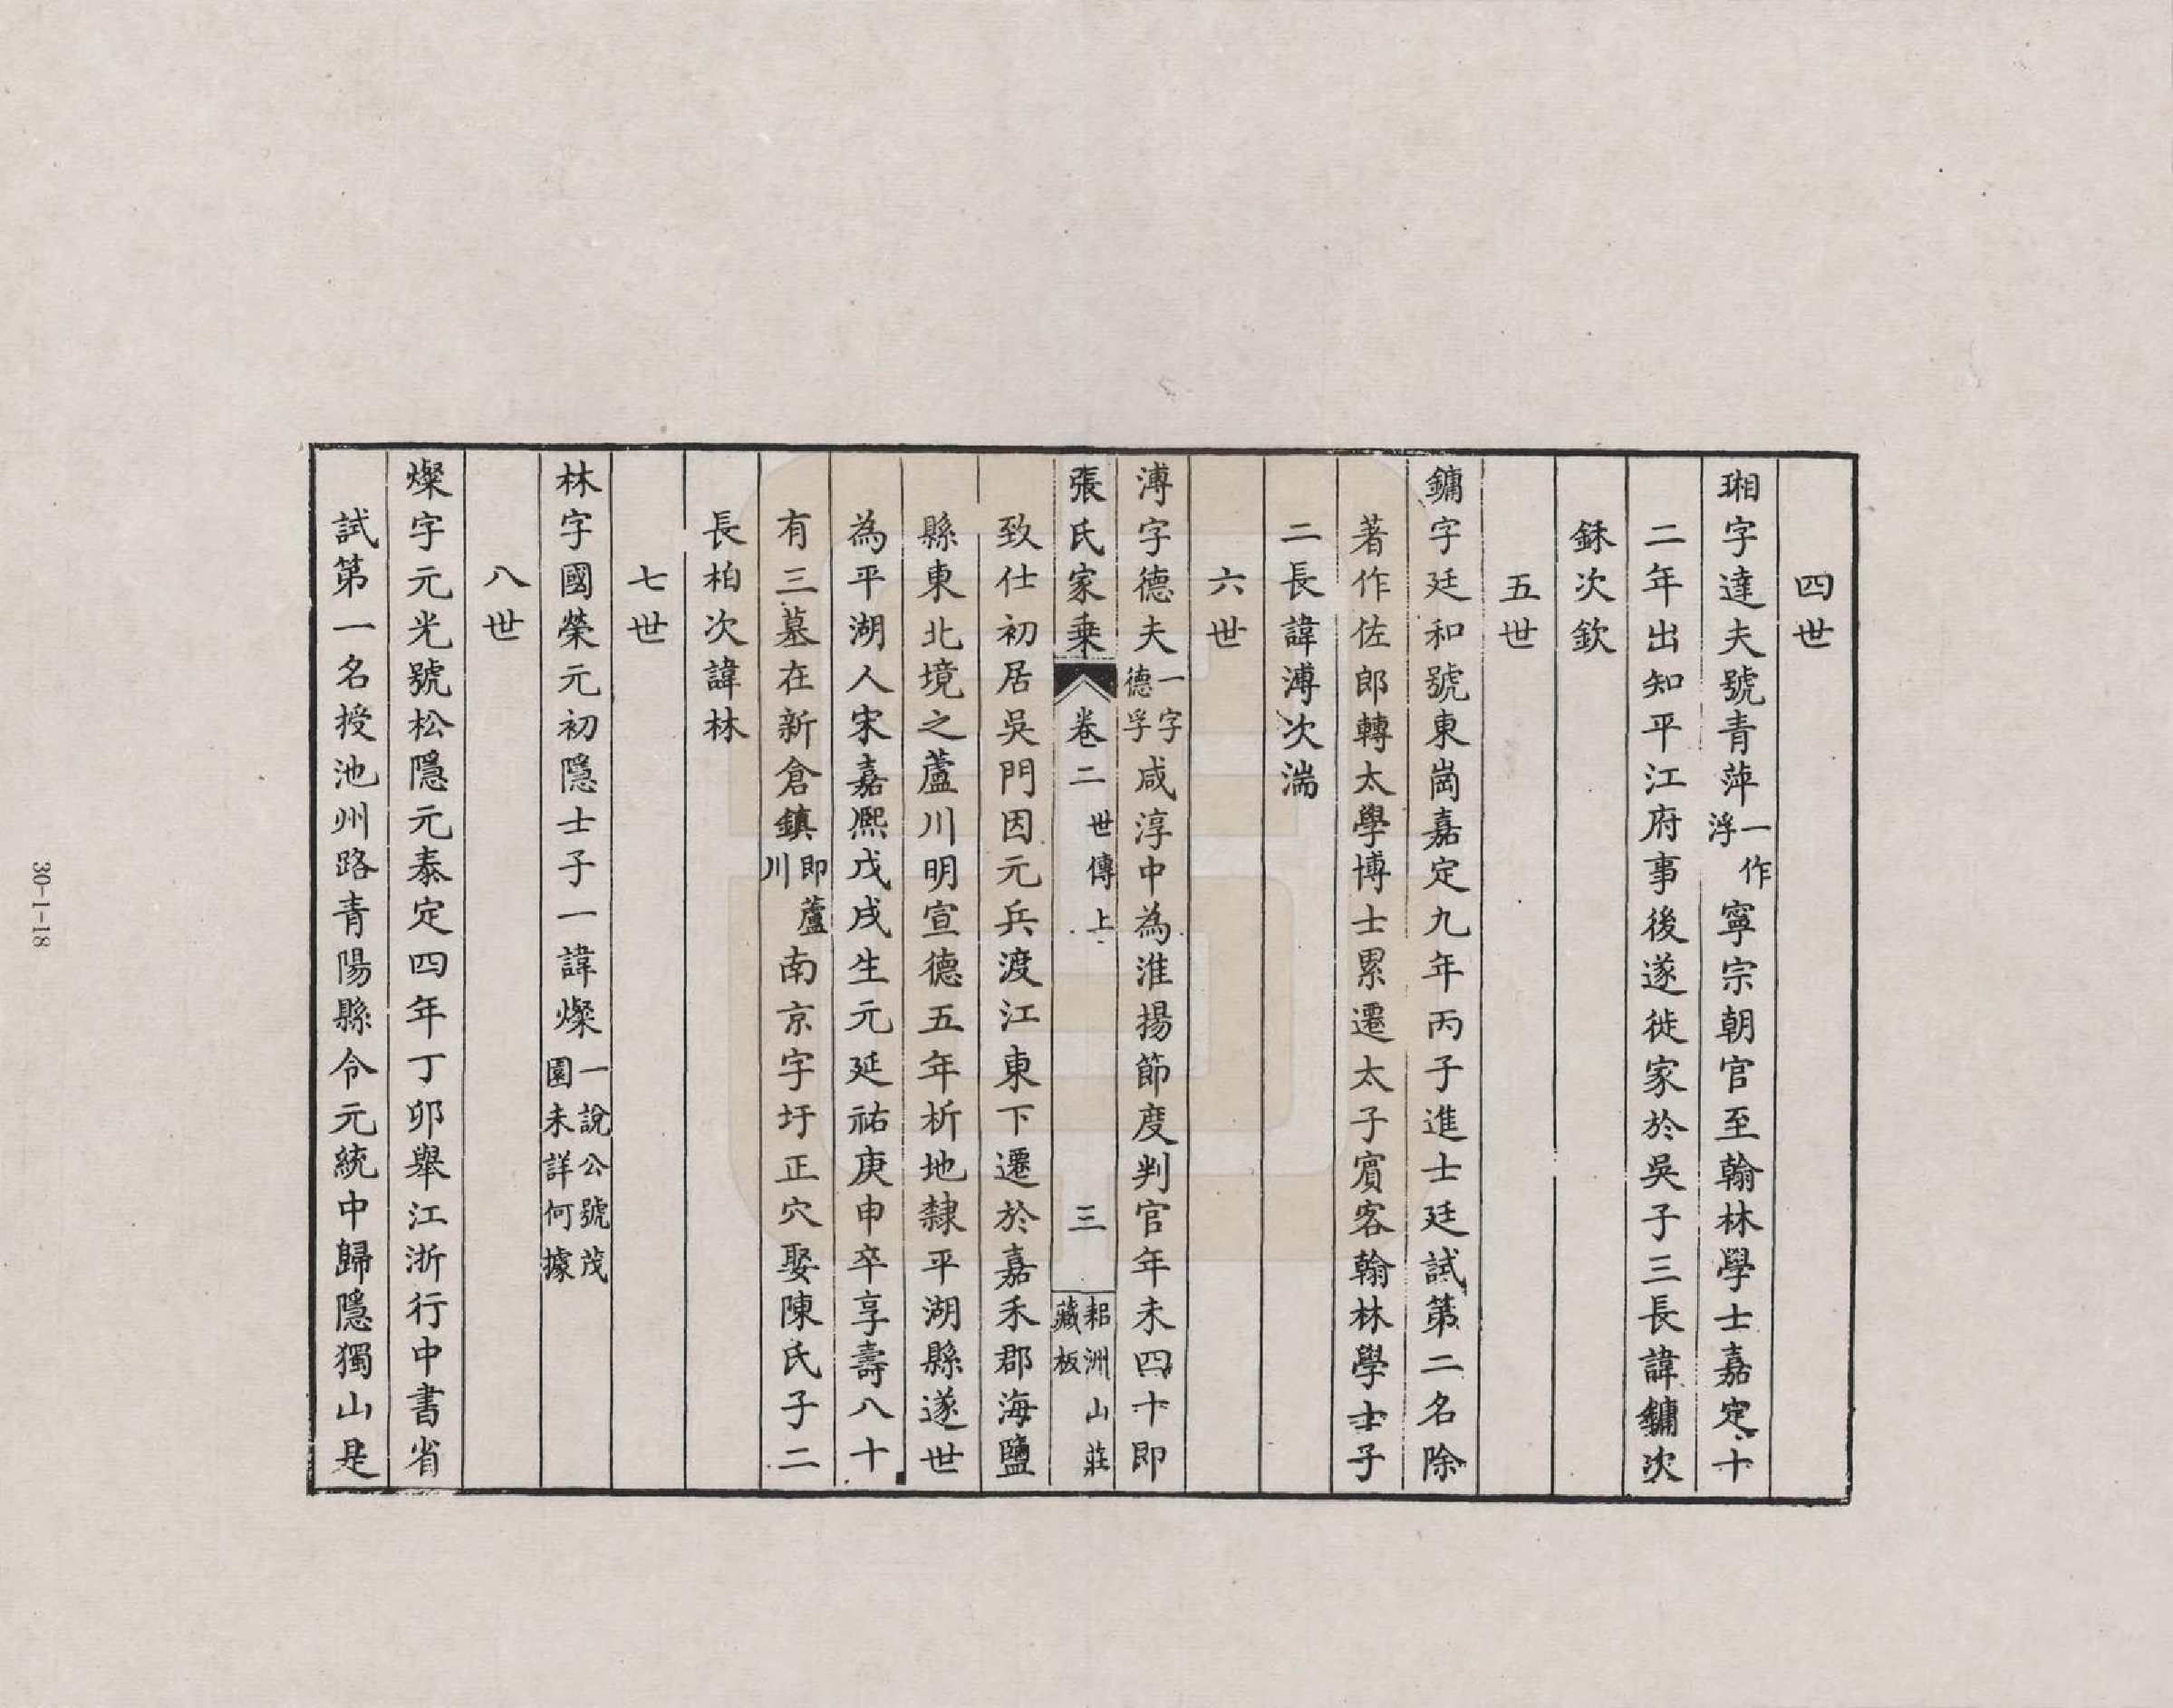 四世
琡字達夫號青萍一作浮寧宗朝官至翰林學士嘉定十
二年出知平江府事後遂徙家於吳子三長諱鏞次
銶次欽
五世
鏞字廷和號東崗嘉定九年丙子進士廷試第二名除
著作佐郎轉太學博士累遷太子賓客翰林學士子
二長諱溥次湍
六世
溥字德夫一字德孚咸淳中為淮揚節度判官年未四十即
張氏家乘 卷二 世傳上 三 耜洲山莊藏板
致仕初居吳門因元兵渡江東下遷於嘉禾郡海鹽
縣東北境之蘆川明宣德五年析地隸平湖縣遂世
為平湖人宋嘉熙戊戌生元延祐庚申卒享壽八十
有三墓在新倉鎮即蘆川南京字圩正穴娶陳氏子二
長柏次諱林
七世
林字國榮元初隱士子一諱燦一說公號茂園未詳何據
八世
燦字元光號松隱元泰定四年丁卯舉江浙行中書省
試第一名授池州路青陽縣令元統中歸隱獨山是
30-1-18